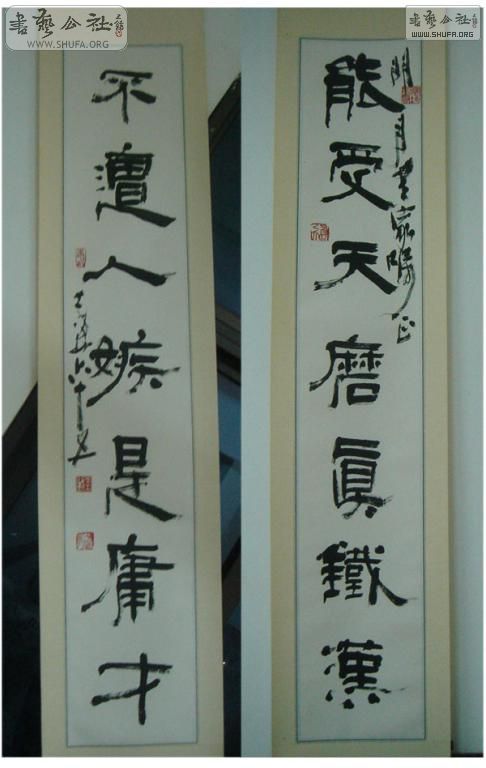 能受天磨真鐵漢
不遭人嫉是庸才
書藝公社
WWW.SHUFA.ORG
書藝公社
WWW.SHUFA.ORG